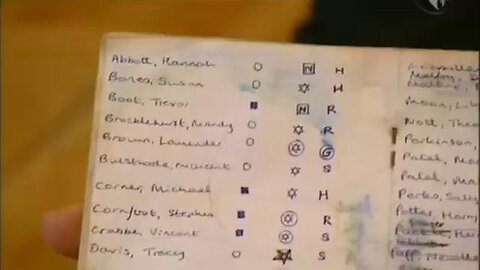 Abbott, Hannah N H
Bones, Susan H
Boot, Trevor N R
Brocklehurst, Mandy R
Brown, Lavender G
Bulstrode, Millicent S
Corner, Michael H
Cornfoot, Stephen R
Crabbe, Vincent S
Davis, Tracey S
Moon, Lil
Nott, Theo
Parkinson,
Patel, Ma
Patel,
Perks, Sally
Potter, Harry